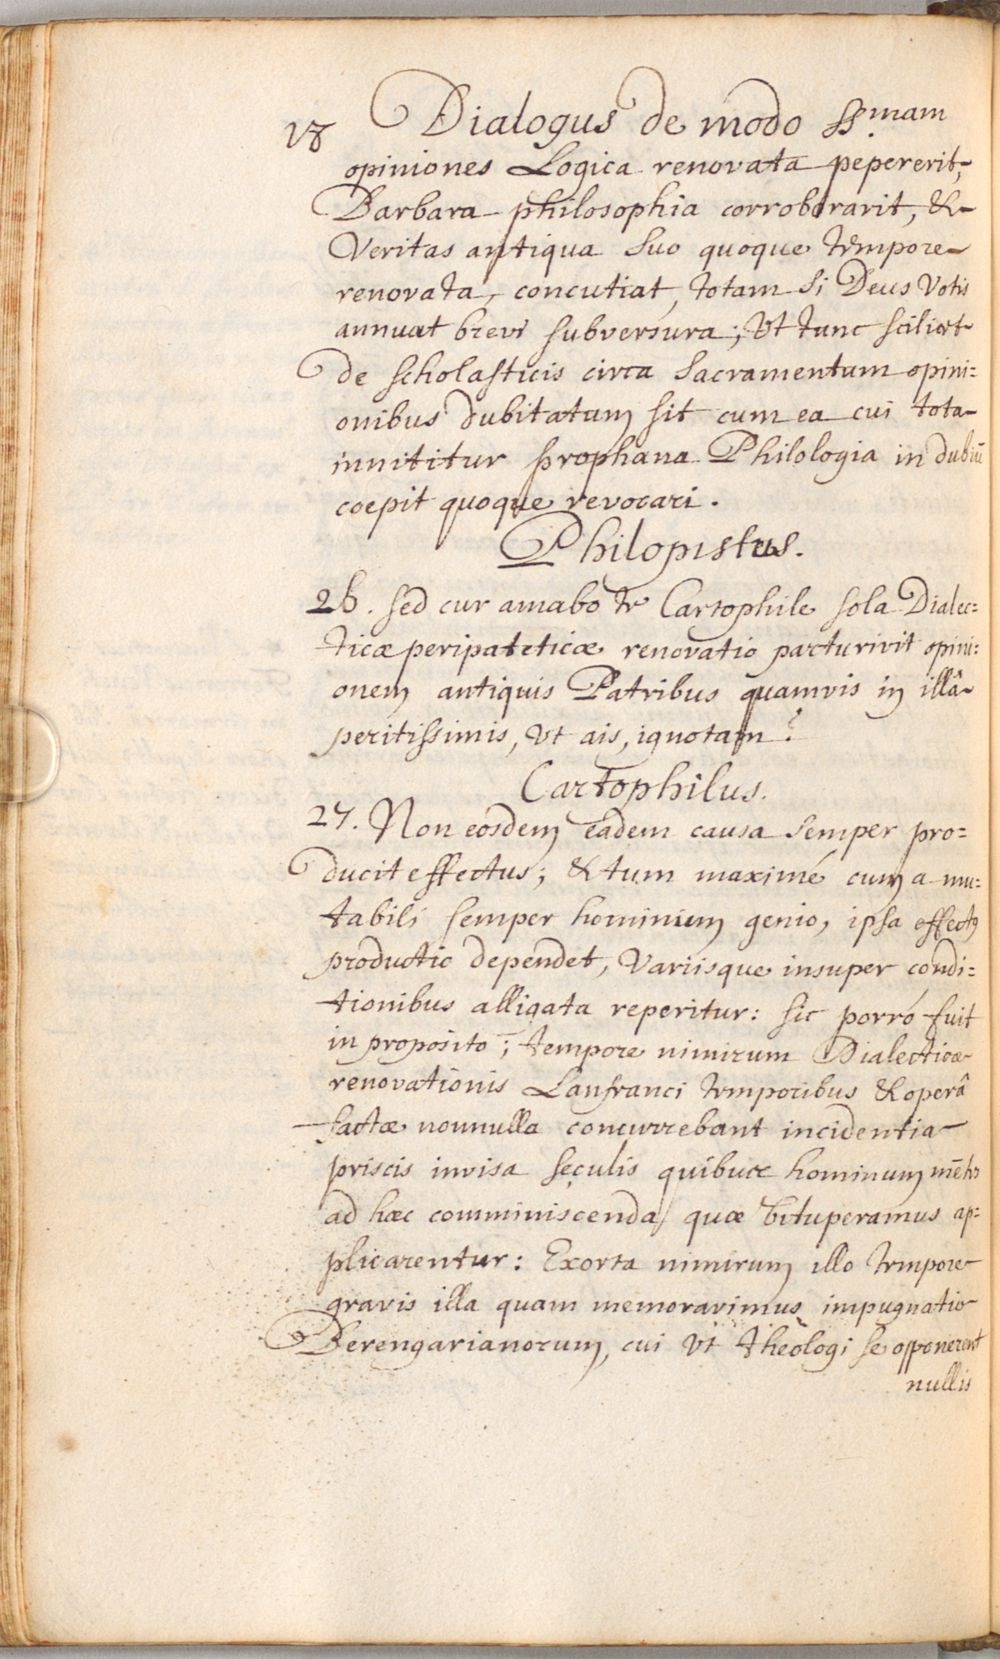 18 Dialogus de modo SS.mam
opiniones Logica renovata pepererit,
Barbara philosophia corroborarit, &
Veritas antiqua suo quoque tempore
renovata, concutiat, totam si Deus Votis
annuat brevi subversura; Vt tunc scilicet
de scholasticis circa Sacramentum opini=
onibus dubitatum sit cum ea cui tota
innititur prophana Philologia in dubiū
coepit quoque revocari.
Philopistus.
26. Sed cur amabo te Cartophile sola Dialec=
ticæ peripateticæ renovatio parturivit opini=
onem antiquis Patribus quamvis in illâ
peritissimis, Vt ais, ignotam?
Cartophilus.
27. Non eosdem eadem causa semper pro=
ducit effectus; & tum maximé cum a mu=
tabili semper hominum genio, ipsa effectus
productio dependet, Variisque insuper condi=
tionibus alligata reperitur: sic porró fuit
in proposito; tempore nimirum Dialecticæ
renovationis Lanfranci temporibus & operâ
factæ nonnulla concurrebant incidentia
priscis invisa seculis quibus hominum mētes
ad hæc comminiscenda, quæ Vituperamus ap=
plicarentur: Exorta nimirum illo tempore
gravis illa quam memoravimus impugnatio
Berengarianorum, cui Vt theologi se opponerent
nullis